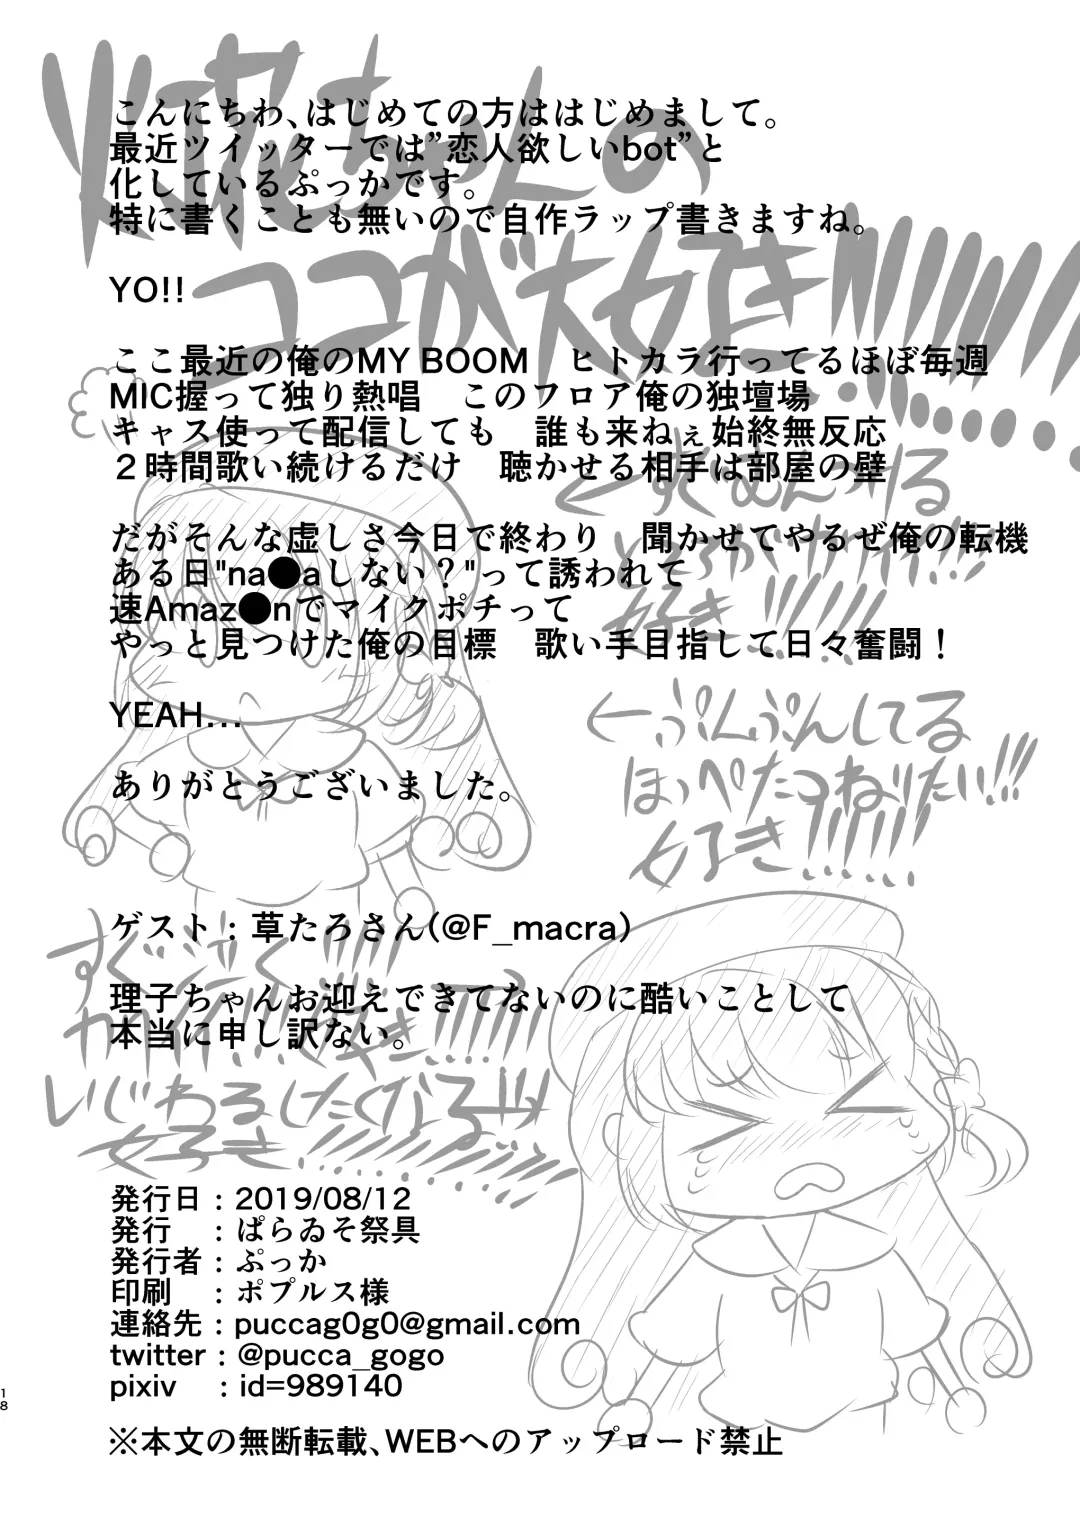 こんにちわ、はじめての方ははじめまして。
最近ツイッターでは”恋人欲しいbot”と
化しているぷっかです。
特に書くことも無いので自作ラップ書きますね。
YO!!
ここ最近の俺のMY BOOM　ヒトカラ行ってるほぼ毎週
MIC握って独り熱唱　このフロア俺の独壇場
キャス使って配信しても　誰も来ねぇ始終無反応
２時間歌い続けるだけ　聴かせる相手は部屋の壁
だがそんな虚しさ今日で終わり　聞かせてやるぜ俺の転機
ある日"na●aしない？"って誘われて
速Amaz●nでマイクポチって
やっと見つけた俺の目標　歌い手目指して日々奮闘！
YEAH...
ありがとうございました。
ゲスト：草たろさん(@F_macra)
理子ちゃんお迎えできてないのに酷いことして
本当に申し訳ない。
発行日：2019/08/12
発行　：ぱらゐそ祭具
発行者：ぷっか
印刷　：ポプルス様
連絡先：puccag0g0@gmail.com
twitter：@pucca_gogo
pixiv　：id=989140
※本文の無断転載、WEBへのアップロード禁止
ちゃんの
ココが大好き!!!!!!!!
好き!!!!!!
←ぷんぷんしてる
ほっぺたつねりたい!!!
好き!!!!!!
いじわるしたくなる!!!
好き!!!!!!
18